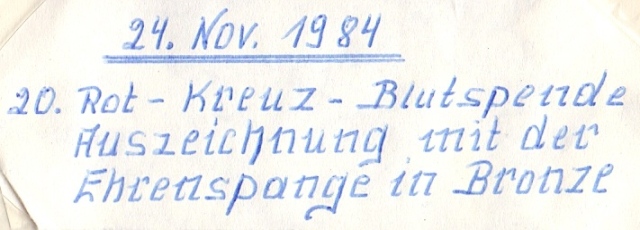 24. Nov. 1984
20. Rot-Kreuz-Blutspende
Auszeichnung mit der
Ehrenspange in Bronze